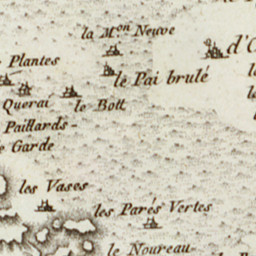 la M.on Neuve
d'O
Plantes
le Pai brulé
Querai
le Bott
Paillards-
Garde
les Vases
les Parés Vertes
le Noureau-